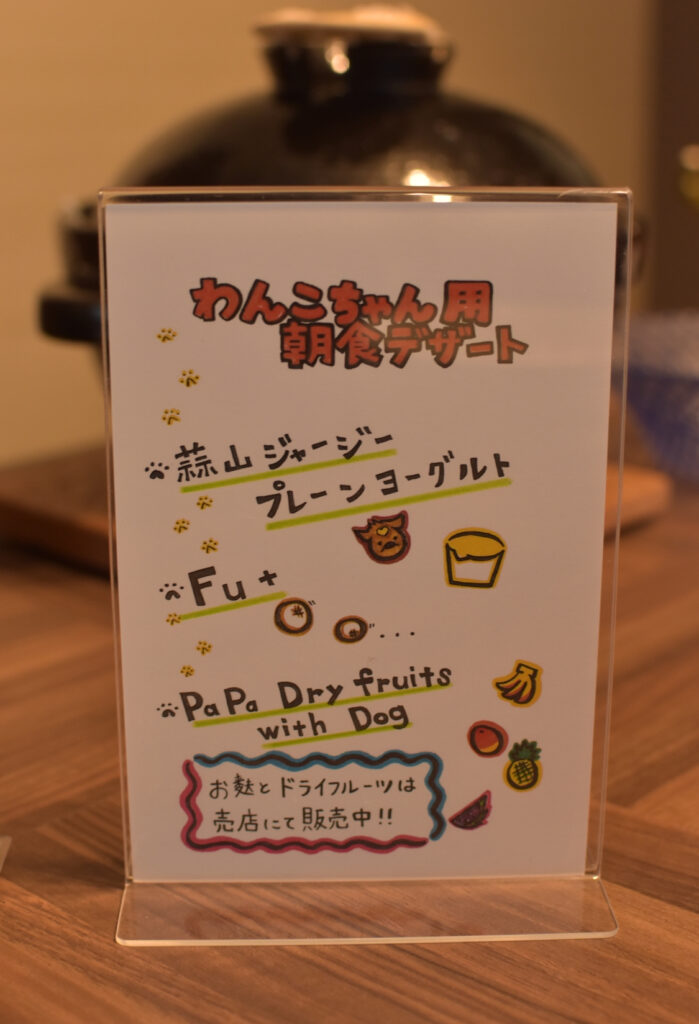 わんこちゃん用
朝食デザート
蒜山ジャージー
プレーンヨーグルト
Fu+
PaPa Dry fruits
with Dog
お麩とドライフルーツは
売店にて販売中!!